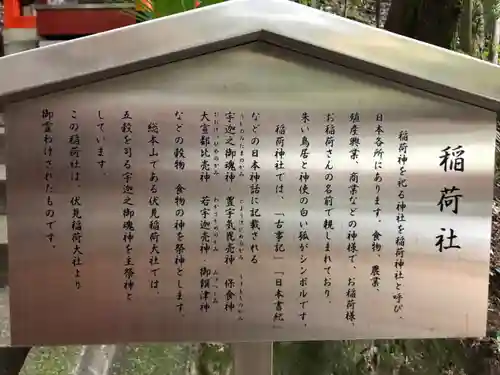 稲荷社
稲荷神を祀る神社を稲荷神社と呼び、
日本各所にあります。食物、農業、
殖産興業、商業などの神様で、お稲荷様、
お稲荷さんの名前で親しまれており、
朱い鳥居と神使の白い狐がシンボルです。
稲荷神社では、「古事記」「日本書紀」
などの日本神話に記載される
宇迦之御魂神 豊宇気毘売神 保食神
大宣都比売神 若宇迦売神 御饌津神
などの穀物、食物の神を祭神とします。
総本山である伏見稲荷大社では、
五穀を司る宇迦之御魂神を主祭神と
しています。
この稲荷社は、伏見稲荷大社より
御霊わけされたものです。